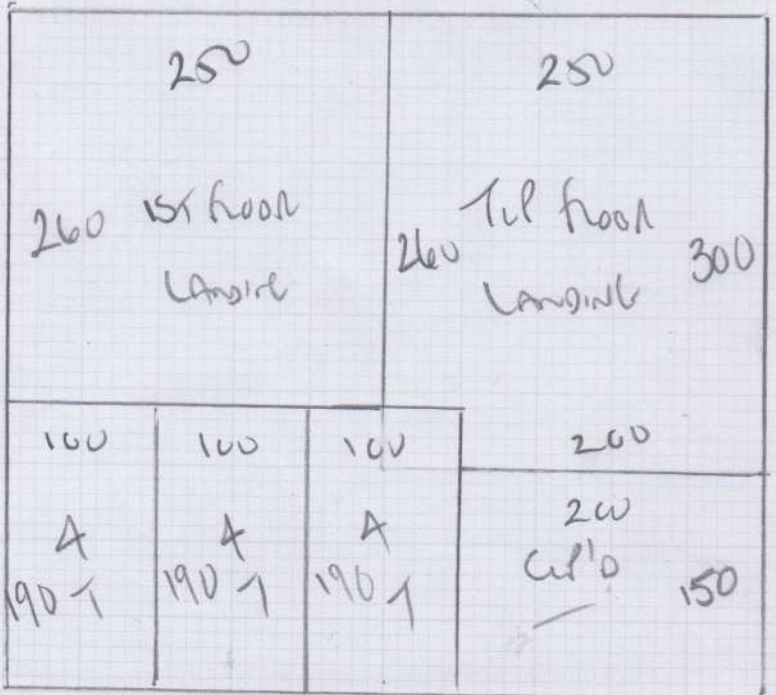 250
260 1ST FLOOR
LANDING
250
260 TOP FLOOR 300
LANDING
200
100
4
190 T
100
4
190 T
100
4
190 T
200
CUP'D 150